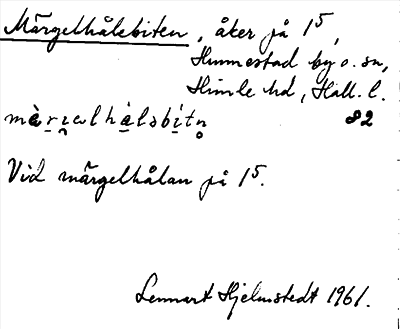 Märgelhålsbiten, åker på 1⁵,
Hunnestad by o. sn,
Himle hd, Hall. l.
82
Vid märgelhålan på 1⁵.
Lennart Hjelmstedt 1961.